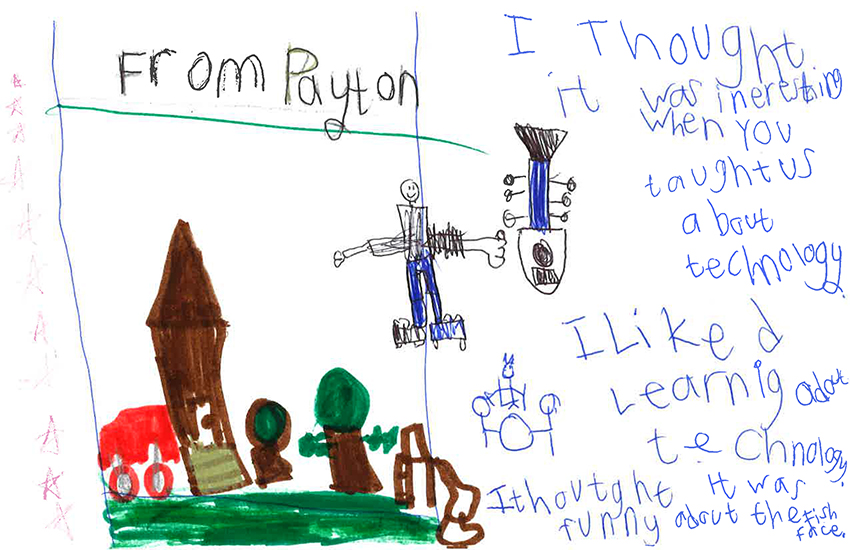 From Payton
I Thought
it was ineresting
when you
taught us
about
technology.
I Liked
Learnig adout
technology.
Ithoutght it was
funny adout the fish
face.